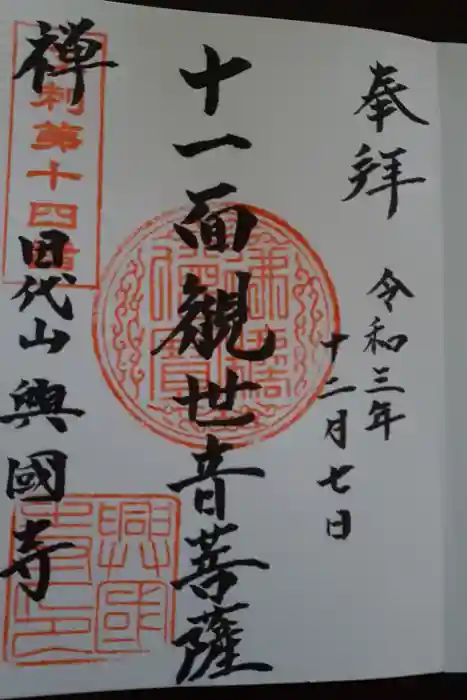 奉拝
令和三年
十二月七日
十一面観世音菩薩
禅
刺第十四番
田代山興國寺
興國